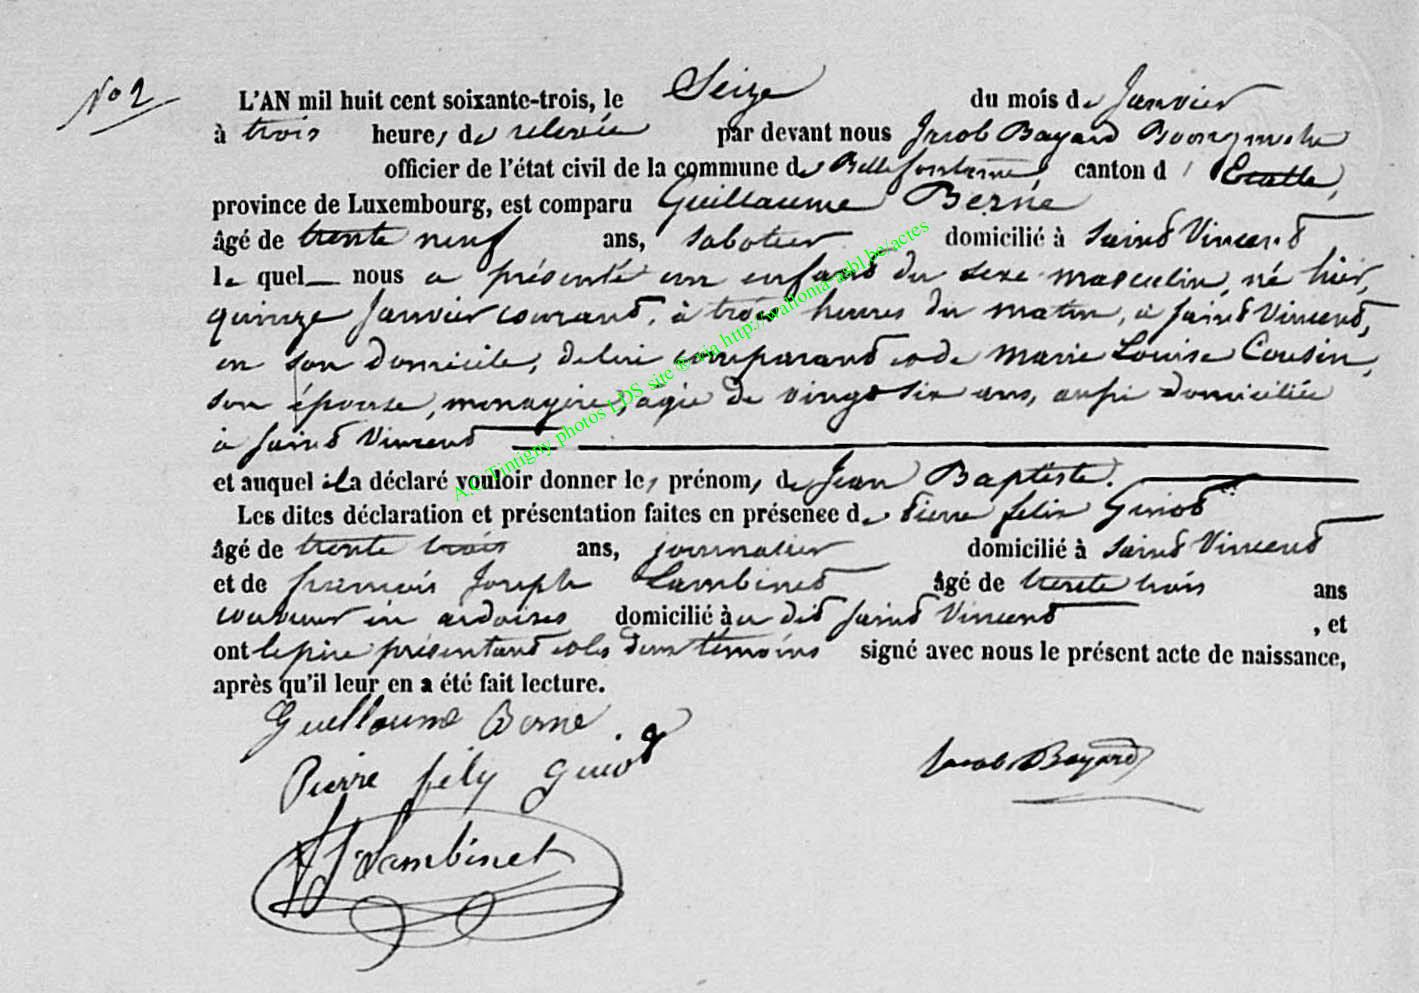 No 2
L'AN mil huit cent soixante-trois, le Seize du mois de Janvier
à trois heures de relevée par devant nous Jacob Bayard Bourgmestre
officier de l'état civil de la commune de Bellefontaine, canton d' Etalle,
province de Luxembourg, est comparu Guillaume Berné
âgé de trente neuf ans, sabotier domicilié à Saind Vincend
le quel nous a présenté un enfand du sexe masculin, né hier,
quinze Janvier courand, à trois heures du matin, à Saind Vincend,
en son domicile, de lui comparand et de Marie Louise Cousin,
son épouse, menagère, agée de vingt six ans, aussi domiciliée
à Saind Vincend
et auquel il a déclaré vouloir donner les prénoms de Jean Baptiste.
Les dites déclaration et présentation faites en présence de Pierre felix Giriod
âgé de trente trois ans, journalier domicilié à Saind Vincend
et de françois Joseph Lambined âgé de trente trois ans
couvreur en ardoises domicilié au did Saind Vincend , et
ont le père présentand et les deux témoins signé avec nous le présent acte de naissance,
après qu'il leur en a été fait lecture.
Guillaume Berne
Pierre fély Guiod
Jacob Bayard
FJ Lambinet
A.C. Tintigny photos LDS site ® via http://wallonia-asbl.be/actes